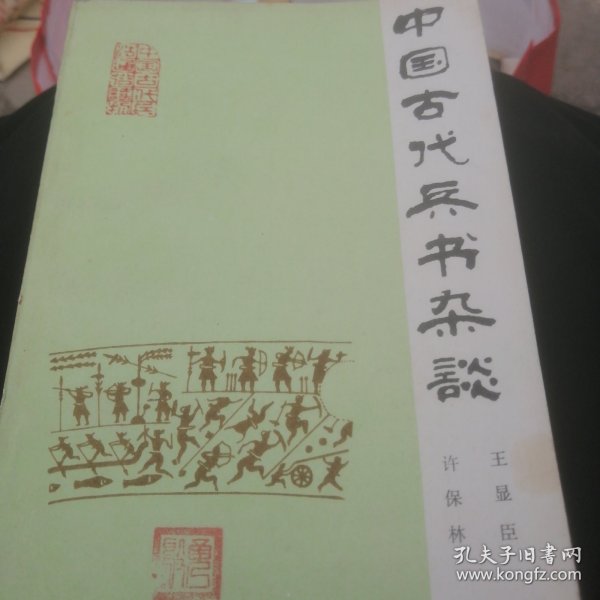 中国古代兵书杂談
王显臣
许保林
孔夫子旧书网
www.kongfz.com